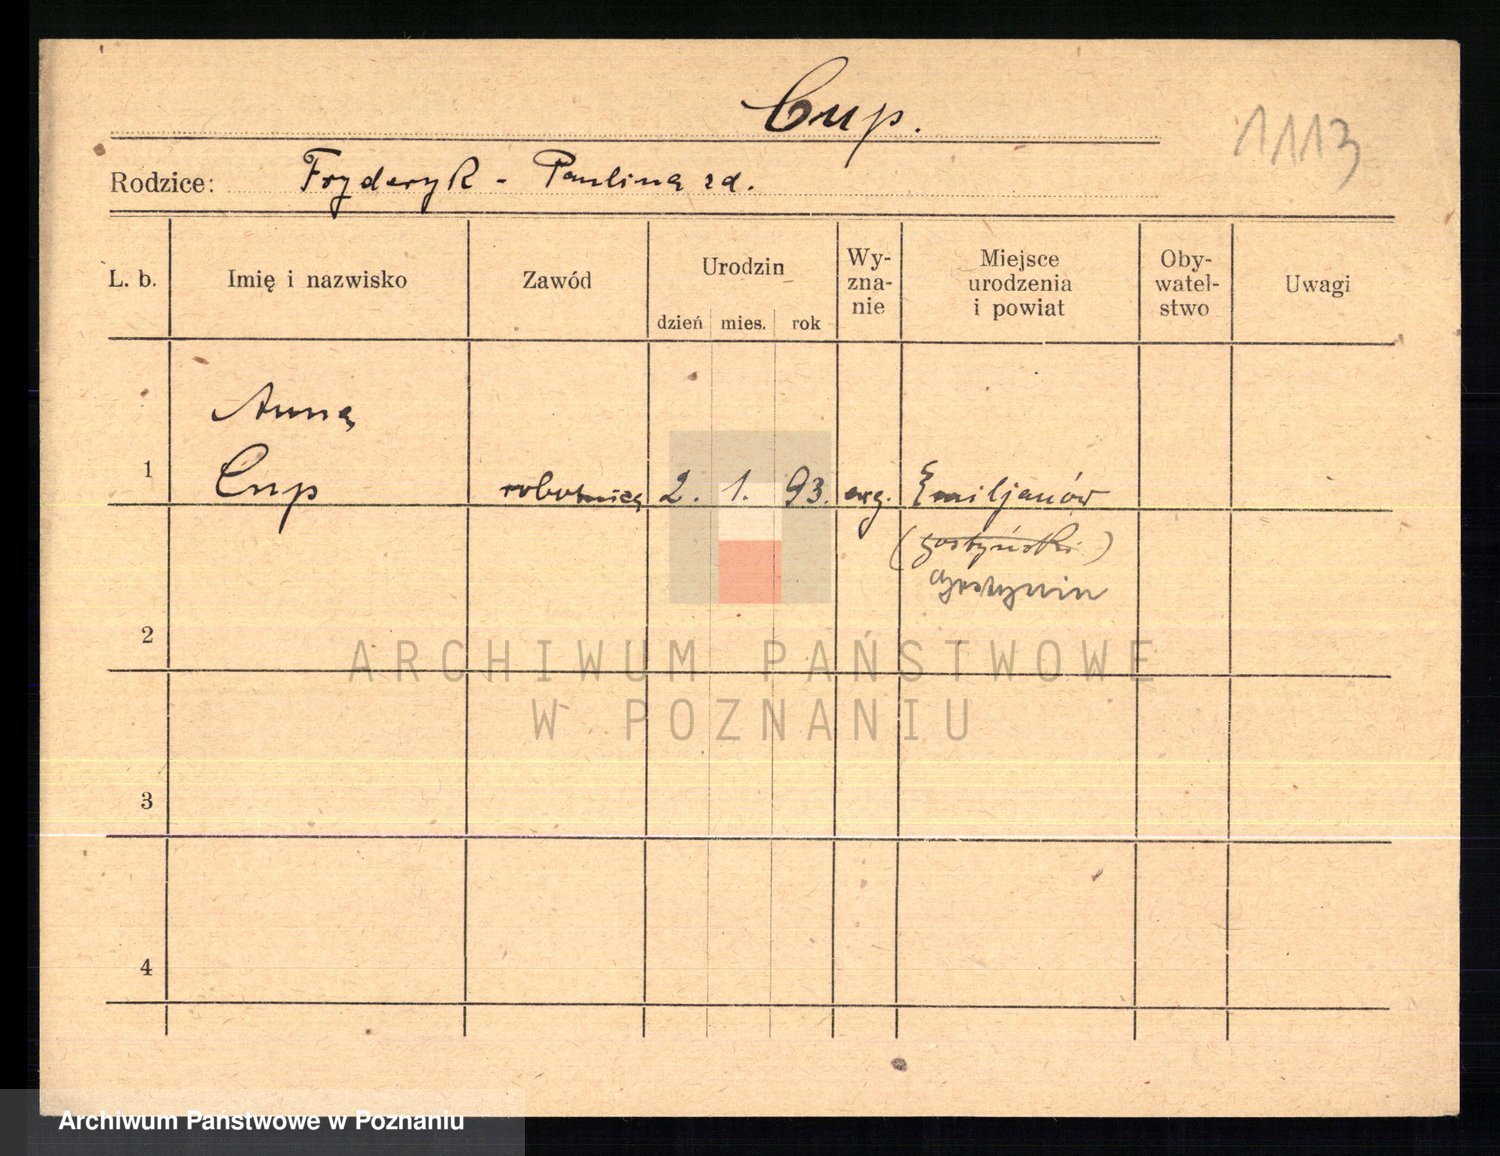 Cup.
1113
Rodzice: Fryderyk - Paulina zd.
L. b. Imię i nazwisko Zawód Urodzin dzień mies. rok Wy-zna-nie Miejsce urodzenia i powiat Oby-watel-stwo Uwagi
Anna
1 Cup robotnica 2. 1. 93. ewg. Emiljanów
(gostyński)
Gostynin
2
ARCHIWUM PAŃSTWOWE
W POZNANIU
3
4
Archiwum Państwowe w Poznaniu